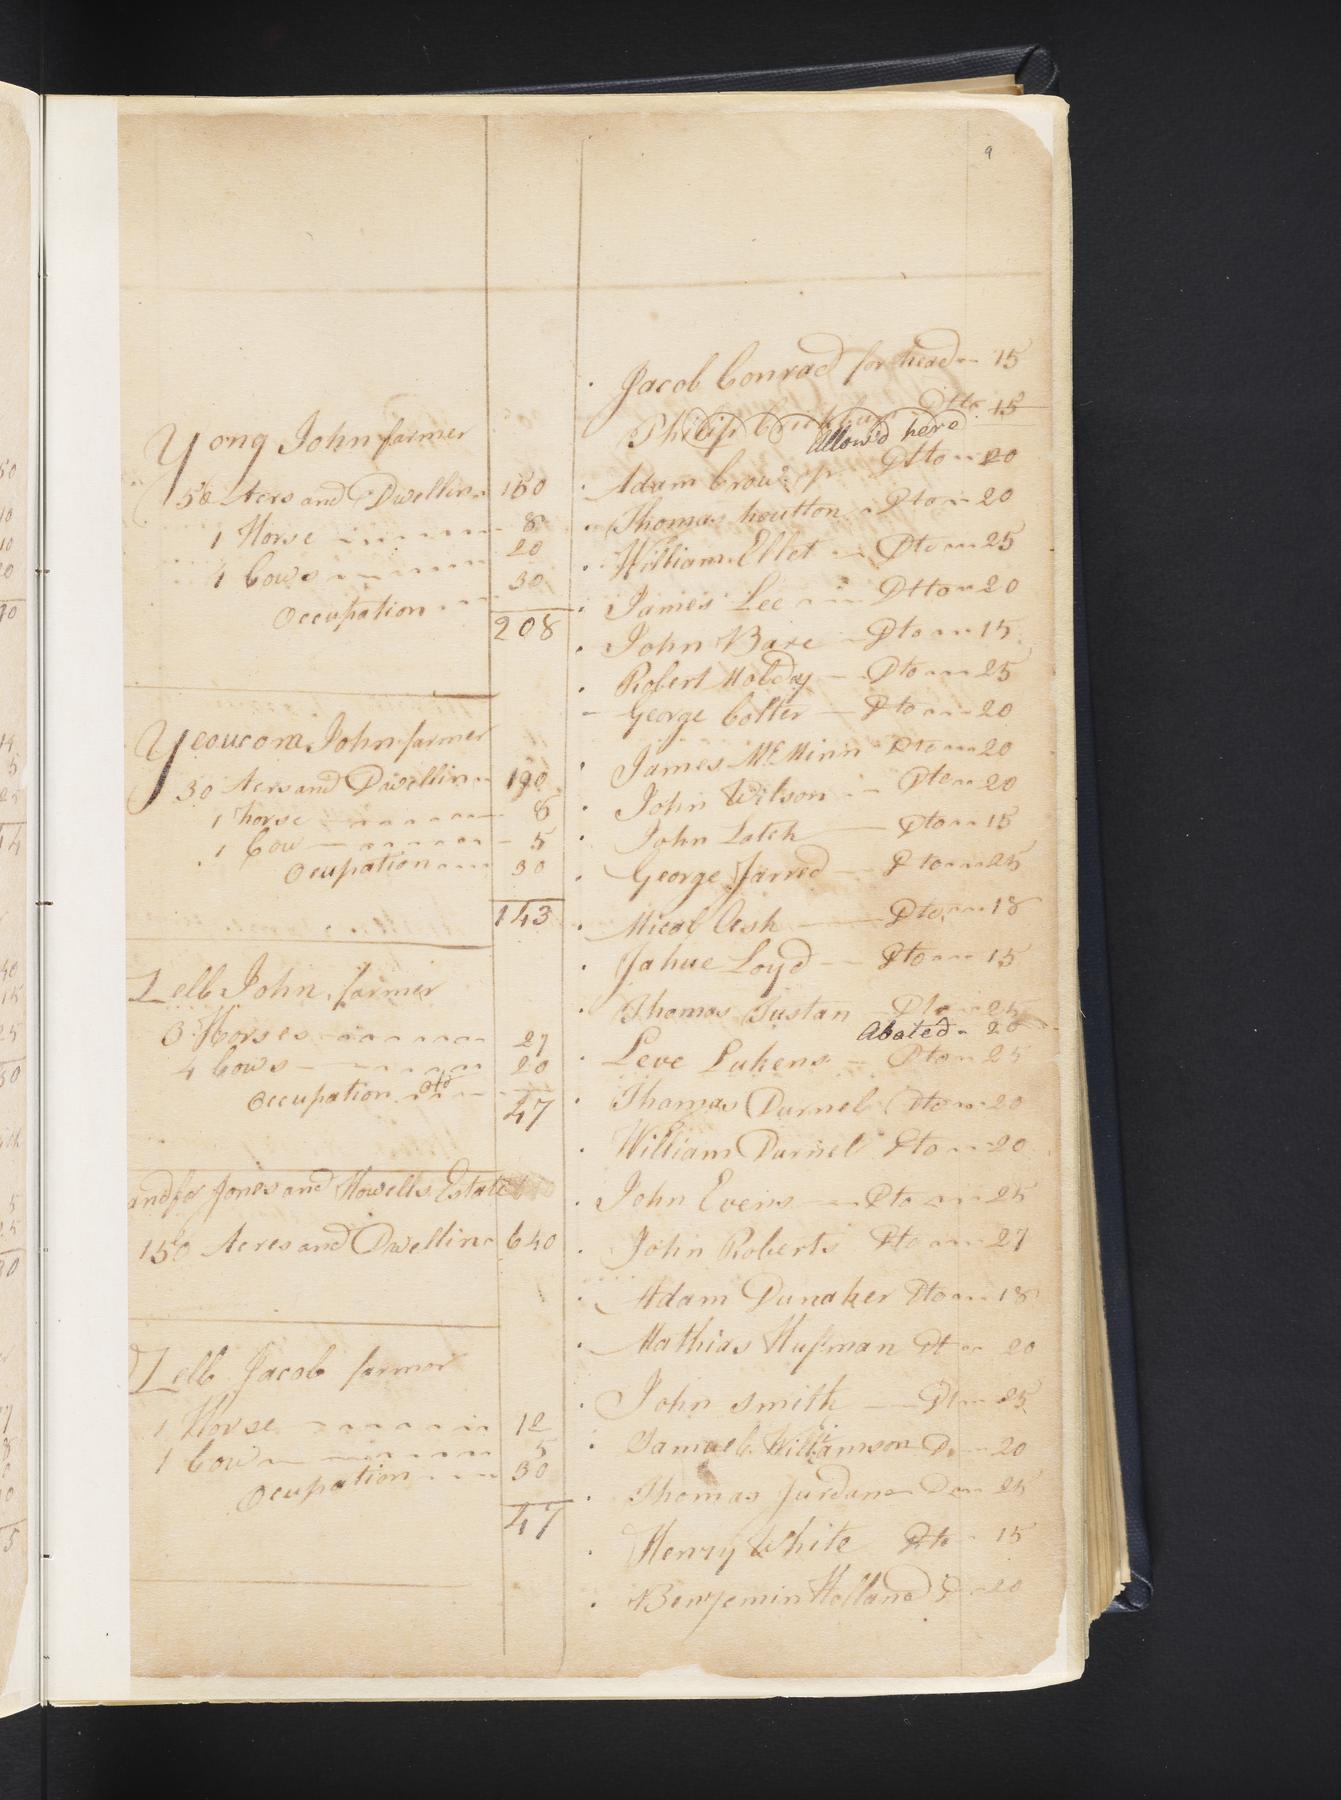 9
Yong John farmer
50 Acrs and Dwelling 150
1 Horse 8
4 Cows 20
Occupation 30
208
Yeoucom John farmer
30 Acrs and Dwelling 190
1 horse 8
1 Cow 5
Ocupation 30
143
Zelb John farmer
3 Horses 27
4 Cows 20
Occupation old
47
and for Jones and Howells Estate
150 Acres and Dwelling 640
Zelb Jacob farmer
1 Horse 12
1 Cow 5
Ocupation 30
47
Jacob Conrad for head 15
Philip Ditto 15
Allowd here
Adam Dtto 20
Thomas houtton Dto 20
William Ellet Dto 25
James Lee Dtto 20
John Bare Dto 15
Robert Hobday Dto 25
George Colter Dto 20
James McMinn Dto 20
John Wilson Dto 20
John Latch Dto 15
George Jarred Dto 25
Mical Ash Dto 18
Jahue Loyd Dto 15
Thomas Tustan Dto 25
Abated 20
Leve Lukens Dto 25
Thomas Durnel Dto 20
William Durnel Dto 20
John Evens Dto 25
John Roberts Dto 27
Adam Dunaker Dto 18
Mathias Hufman Dt 20
John Smith Dt 25
Samuel Williamson Do 20
Thomas Jurdan Do 25
Henry White Dto 15
Benjemin Holland D 20